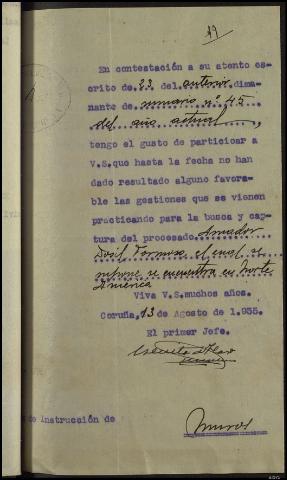 19
En contestación a su atento es-
crito de 23 del anterior dima-
nante de sumario nº 45
del año actual,
tengo el gusto de participar a
V.S. que hasta la fecha no han
dado resultado alguno favora-
ble las gestiones que se vienen
practicando para la busca y cap-
tura del procesado Amador
Formoso el cual se
supone se encuentra en Norte
América
Viva V.S. muchos años.
Coruña, 13 de Agosto de 1.935.
El primer Jefe.
de Instrucción de
Muros